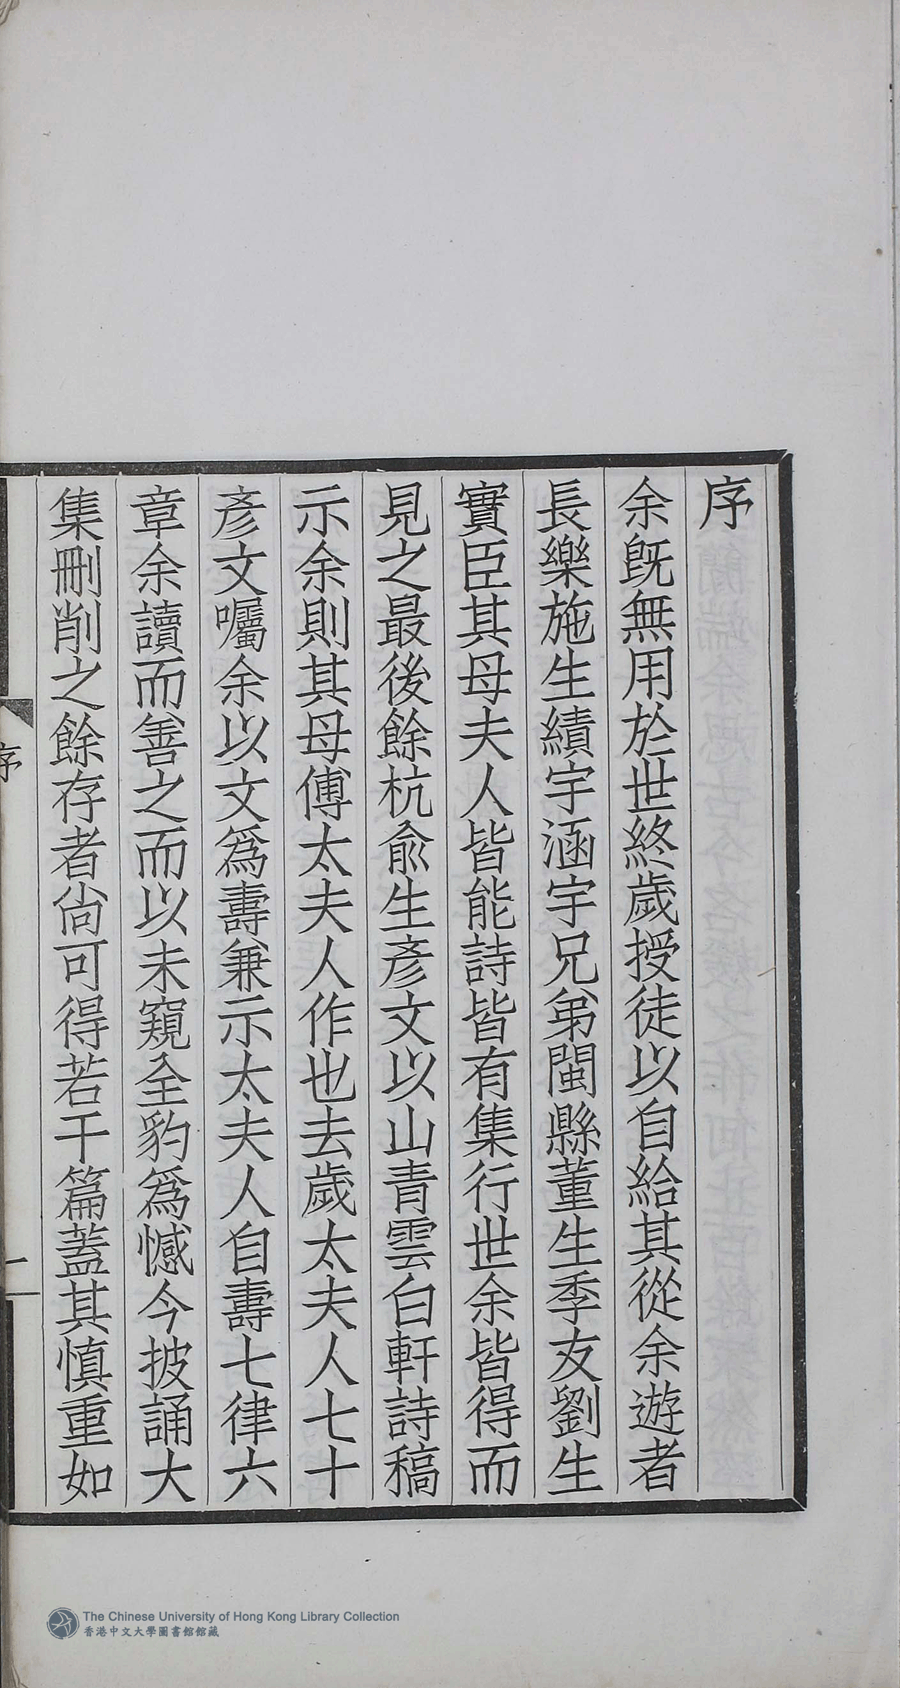 序
余旣無用於世終歲授徒以自給其從余遊者
長樂施生績宇涵宇兄弟閩縣董生季友劉生
實臣其母夫人皆能詩皆有集行世余皆得而
見之最後餘杭俞生彥文以山青雲白軒詩稿
示余則其母傅太夫人作也去歲太夫人七十
彥文囑余以文爲壽兼示太夫人自壽七律六
章余讀而善之而以未窺全豹爲憾今披誦大
集刪削之餘存者尙可得若干篇蓋其慎重如
序
一
The Chinese University of Hong Kong Library Collection
香港中文大學圖書館館藏